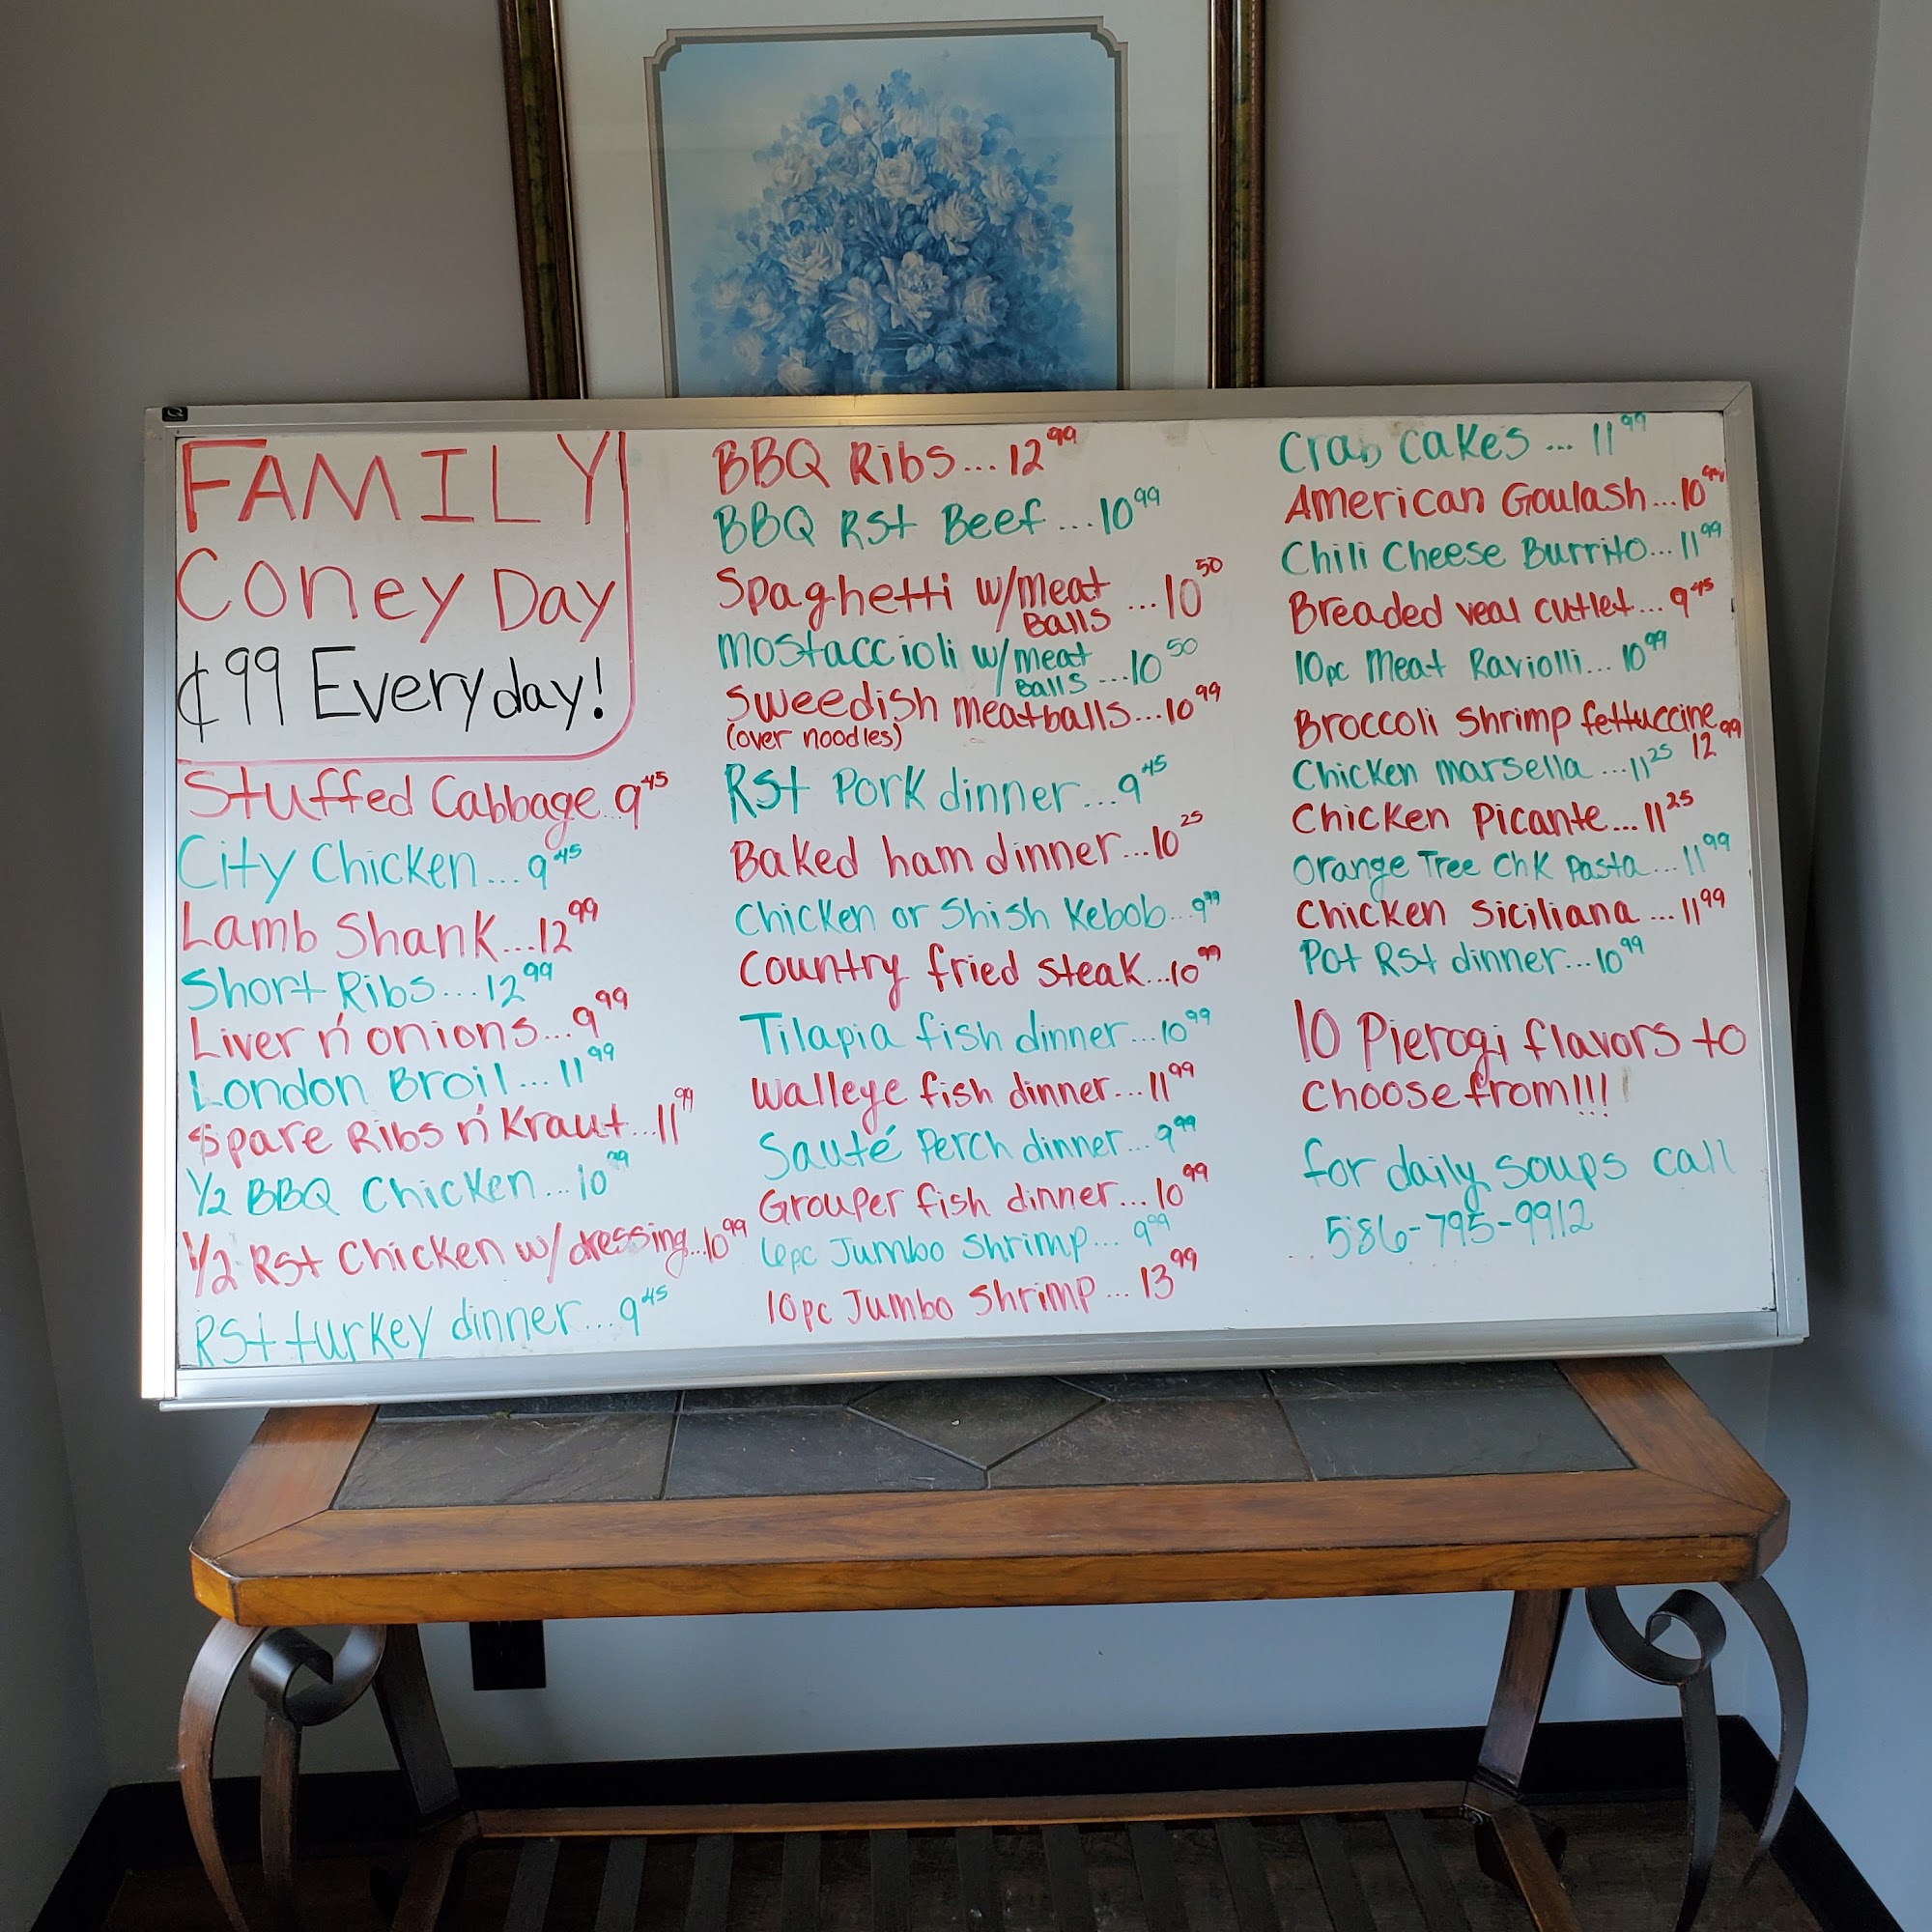 FAMILY
Coney Day
¢99 Everyday!
Stuffed Cabbage...9 45
City Chicken...9 45
Lamb Shank...12 99
Short Ribs...12 99
Liver n' onions...9 99
London Broil...11 99
Spare Ribs n' Kraut...11 99
1/2 BBQ Chicken...10 99
1/2 Rst Chicken w/dressing...10 99
Rst turkey dinner...9 45
BBQ Ribs...12 99
BBQ Rst Beef...10 99
Spaghetti w/meat Balls...10 50
mostaccioli w/meat Balls...10 50
Sweedish meatballs...10 99
(over noodles)
Rst Pork dinner...9 45
Baked ham dinner...10 25
Chicken or Shish Kebob...9 99
Country fried steak...10 99
Tilapia fish dinner...10 99
Walleye fish dinner...11 99
Sauté Perch dinner...9 99
Grouper fish dinner...10 99
6pc Jumbo Shrimp...9 99
10pc Jumbo Shrimp...13 99
Crab cakes...11 99
American Goulash...10 99
Chili Cheese Burrito...11 99
Breaded veal cutlet...9 45
10pc Meat Raviolli...10 99
Broccoli Shrimp fettuccine 12 99
Chicken marsella...11 25
Chicken Picante...11 25
Orange Tree Chk Pasta...11 99
Chicken Siciliana...11 99
Pot Rst dinner...10 99
10 Pierogi flavors to
choose from!!!
for daily soups call
586-795-9912